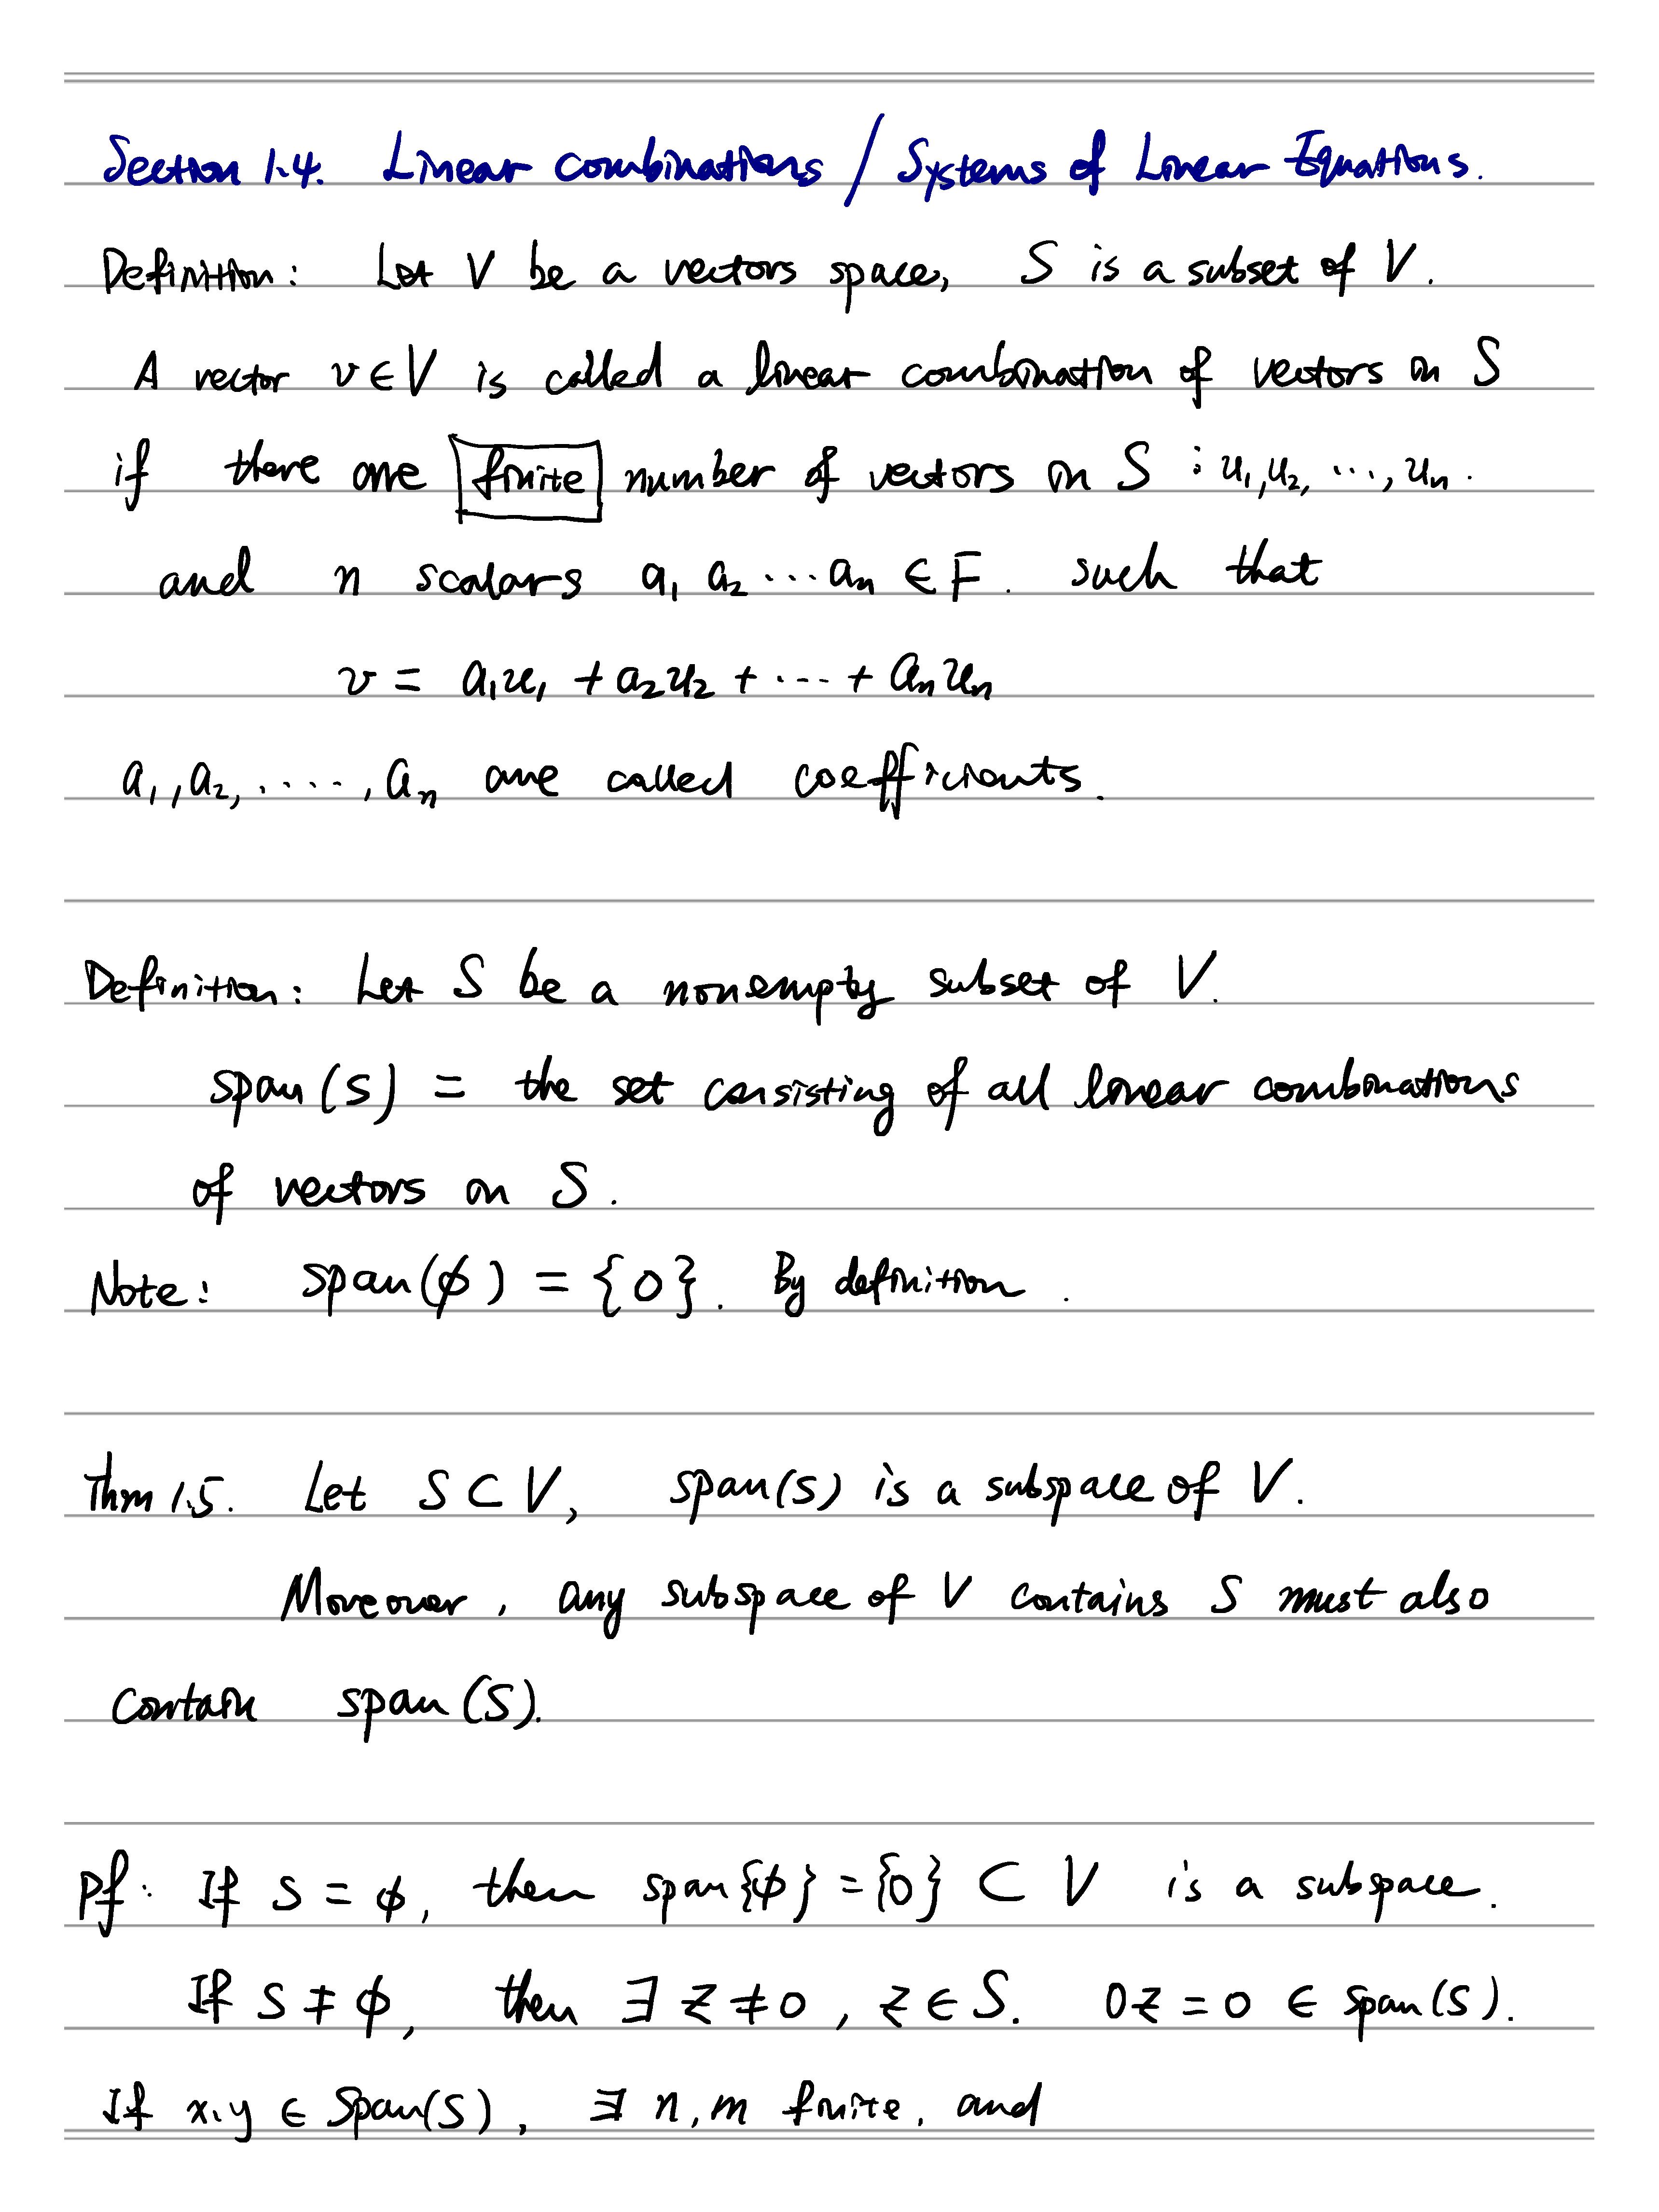 Section 1.4. Linear combinations / Systems of Linear Equations.
Definition: Let V be a vectors space, S is a subset of V.
A vector v ∈ V is called a linear combination of vectors in S
if there are finite number of vectors in S : u₁, u₂, ..., uₙ.
and n scalars a₁ a₂ ... aₙ ∈ F. such that
v = a₁u₁ + a₂u₂ + ... + aₙuₙ
a₁, a₂, ....., aₙ are called coefficients.
Definition: Let S be a nonempty subset of V.
span(S) = the set consisting of all linear combinations
of vectors in S.
Note: span(ϕ) = {0}. By definition.
Thm 1.5. Let S ⊂ V, span(S) is a subspace of V.
Moreover, any subspace of V contains S must also
contain span(S).
Pf: If S = ϕ, then span{ϕ} = {0} ⊂ V is a subspace.
If S ≠ ϕ, then ∃ z ≠ 0, z ∈ S. 0z = 0 ∈ span(S).
If x, y ∈ Span(S), ∃ n, m finite, and